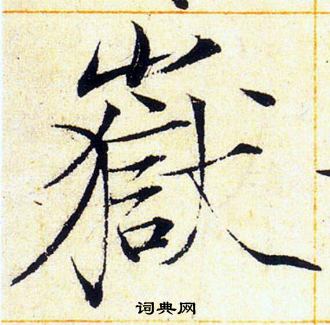 嶽
词典网